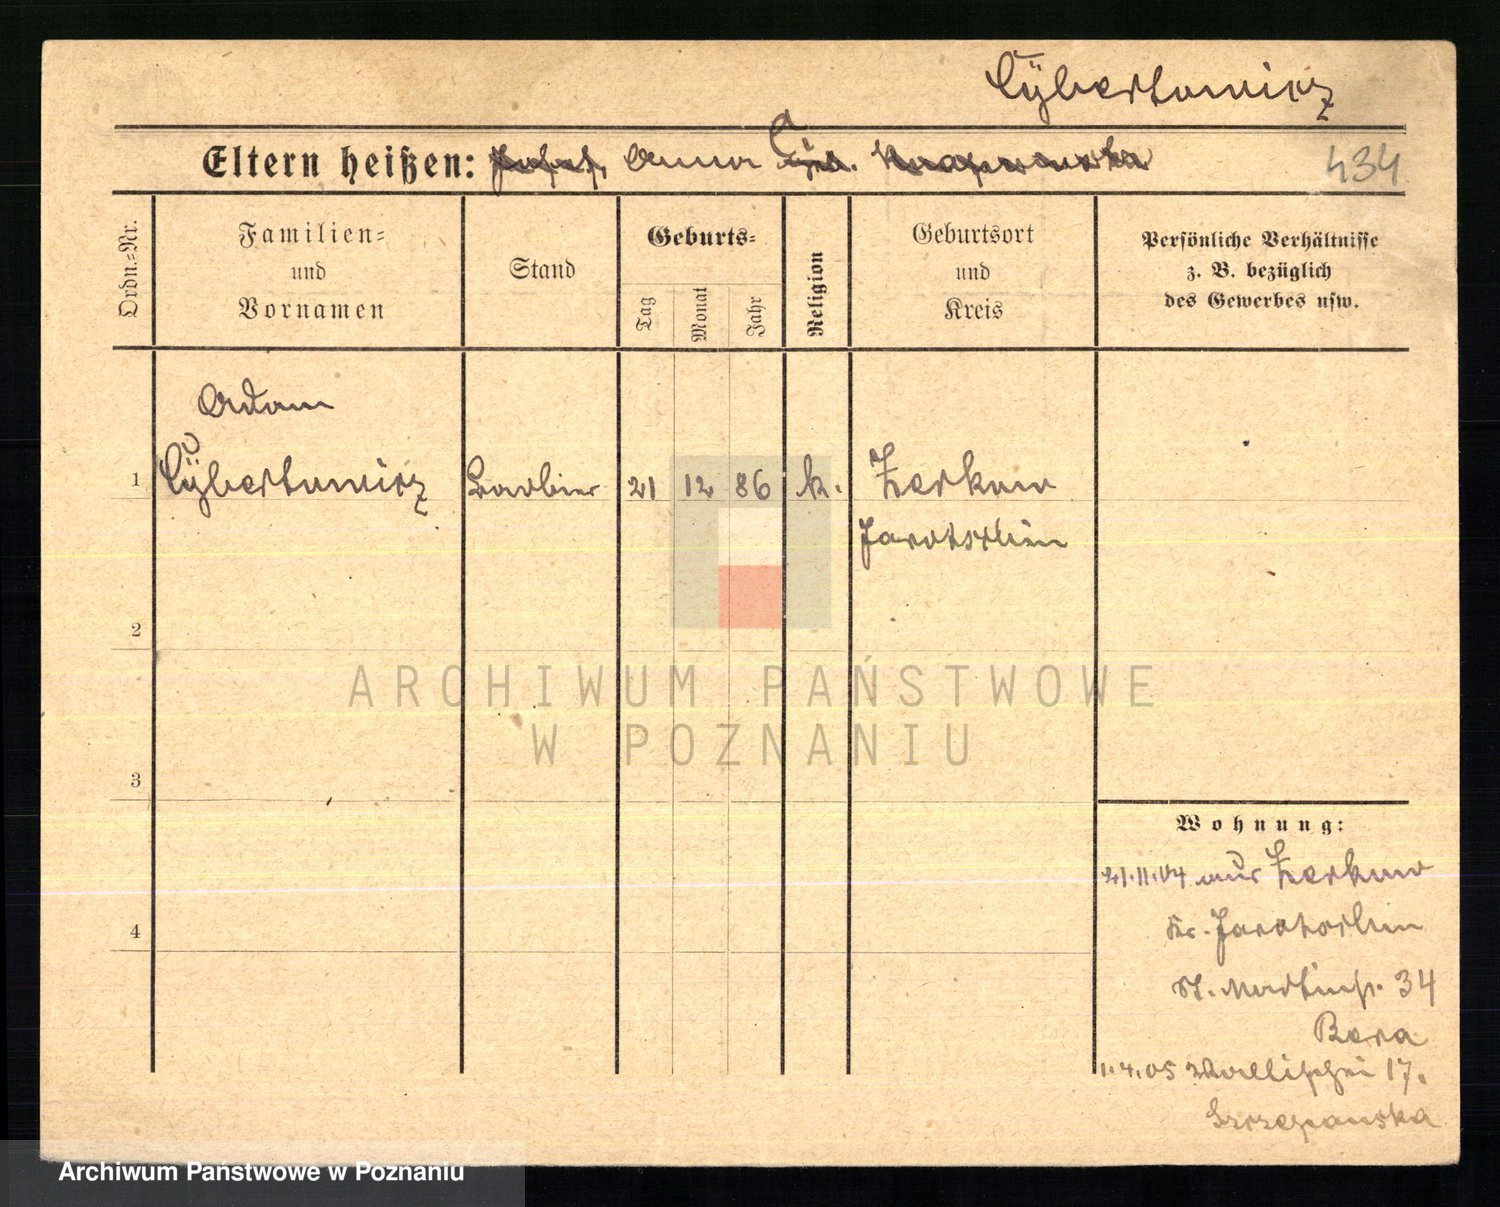 Cÿbertowicz
Eltern heißen: Josef, Anna C
434
Ordn.=Nr.
Familien=
und
Vornamen
Stand
Geburts=
Tag
Monat
Jahr
Religion
Geburtsort
und
Kreis
Persönliche Verhältnisse
z. B. bezüglich
des Gewerbes usw.
Adam
1 Cÿbertowicz Barbier 21 12 86 k. Zerkow
Jarotschin
2
3
4
Wohnung:
21.11.04 aus Zerkow
Kr. Jarotschin
St. Martinst. 34
Bera
1.4.05 Wallischei 17.
Szczepanska
ARCHIWUM PAŃSTWOWE
W POZNANIU
Archiwum Państwowe w Poznaniu